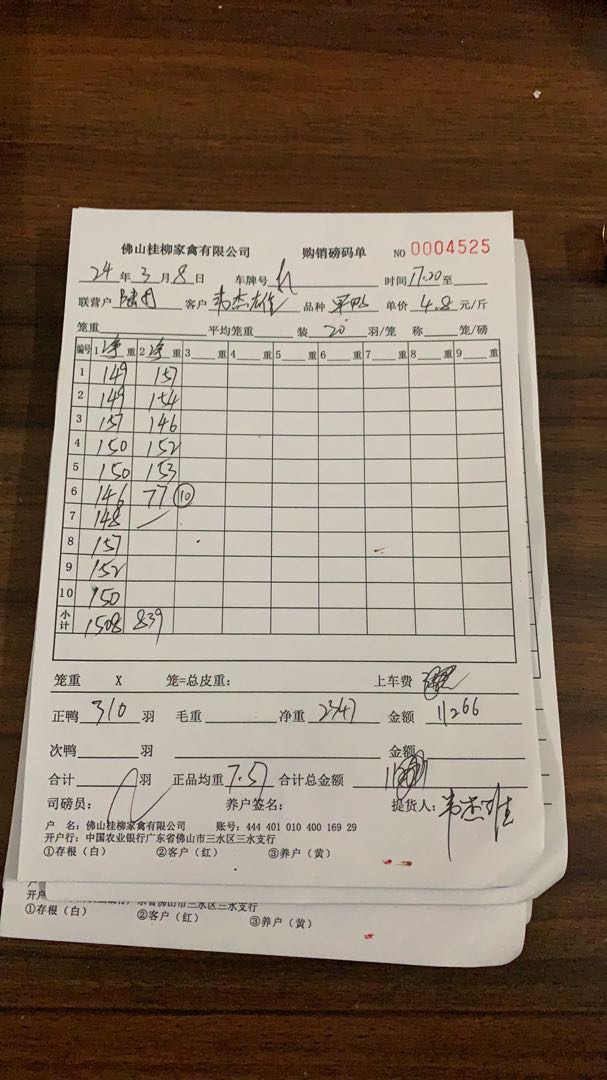 佛山桂柳家禽有限公司 购销磅码单 NO 0004525
24年3月8日 车牌号 时间17.20至
联营户 客户 韦杰雄 品种 单价 4.8 元/斤
笼重 平均笼重 装 20 羽/笼 称 笼/磅
编号 1 净 重 2 净 重 3 重 4 重 5 重 6 重 7 重 8 重 9 重
1 149 157
2 149 154
3 157 146
4 150 152
5 150 153
6 146 77 ⑩
7 148
8 157
9 152
10 150
小计 1508 839
笼重 X 笼=总皮重: 上车费
正鸭 310 羽 毛重 净重 2347 金额 11266
次鸭 羽 金额
合计 羽 正品均重 7.57 合计总金额
司磅员: 养户签名: 提货人: 韦杰雄
户 名: 佛山桂柳家禽有限公司 账号: 444 401 010 400 169 29
开户行: 中国农业银行广东省佛山市三水区三水支行
①存根(白) ②客户(红) ③养户(黄)
佛山市三水区三水支行
①存根(白) ②客户(红) ③养户(黄)